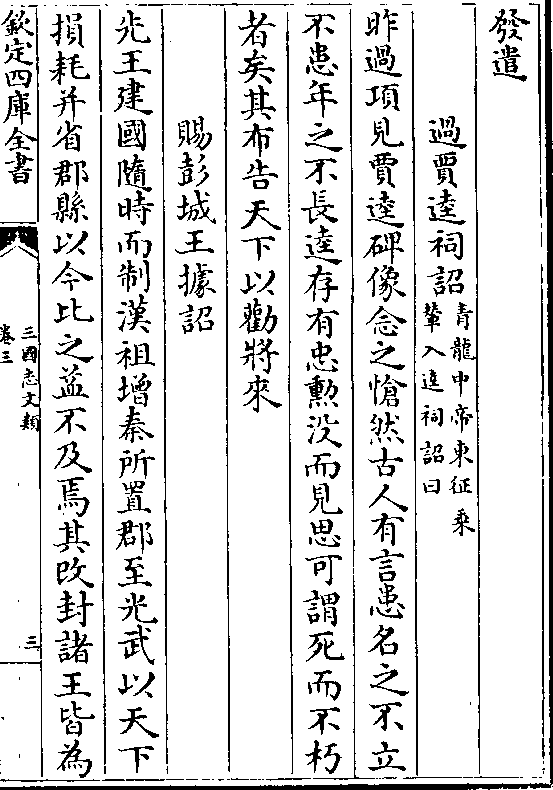 發遣
過賈逵祠詔青龍中帝東征乗
輦入逵祠詔曰
昨過項見賈逵碑像念之愴然古人有言患名之不立
不患年之不長逵存有忠勲没而見思可謂死而不朽
者矣其布告天下以勸將來
賜彭城王據詔
先王建國隨時而制漢祖增秦所置郡至光武以天下
損耗并省郡縣以今比之益不及焉其改封諸王皆為
欽定四庫全書
三國志文類
卷三
三